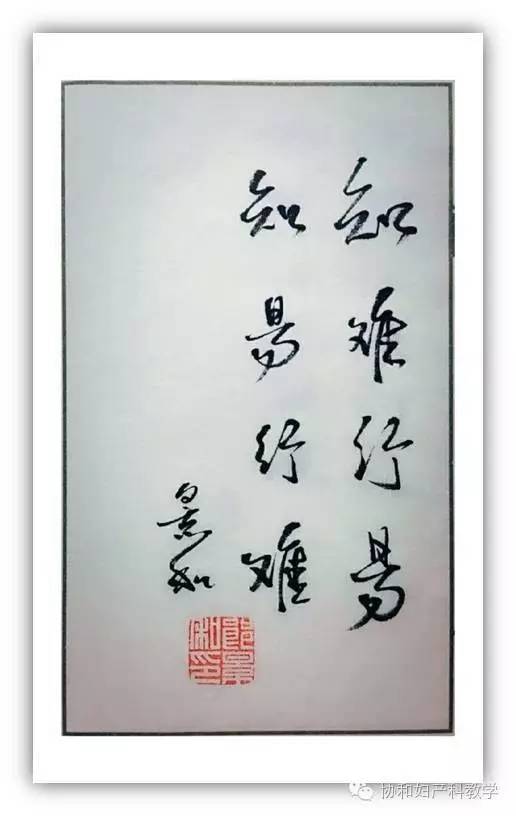 知难行易
知易行难
景和
郎景和印
协和妇产科教学